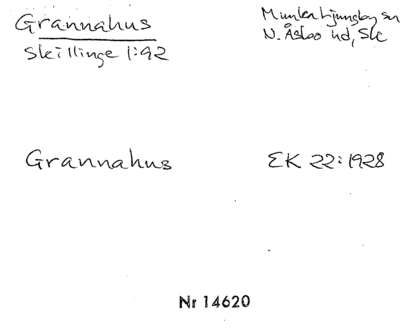 Grannahus
Skillinge 1:92
Munka Ljungby sn
N. Åsbo hd, Sk
Grannahus
EK 22:1928
Nr 14620